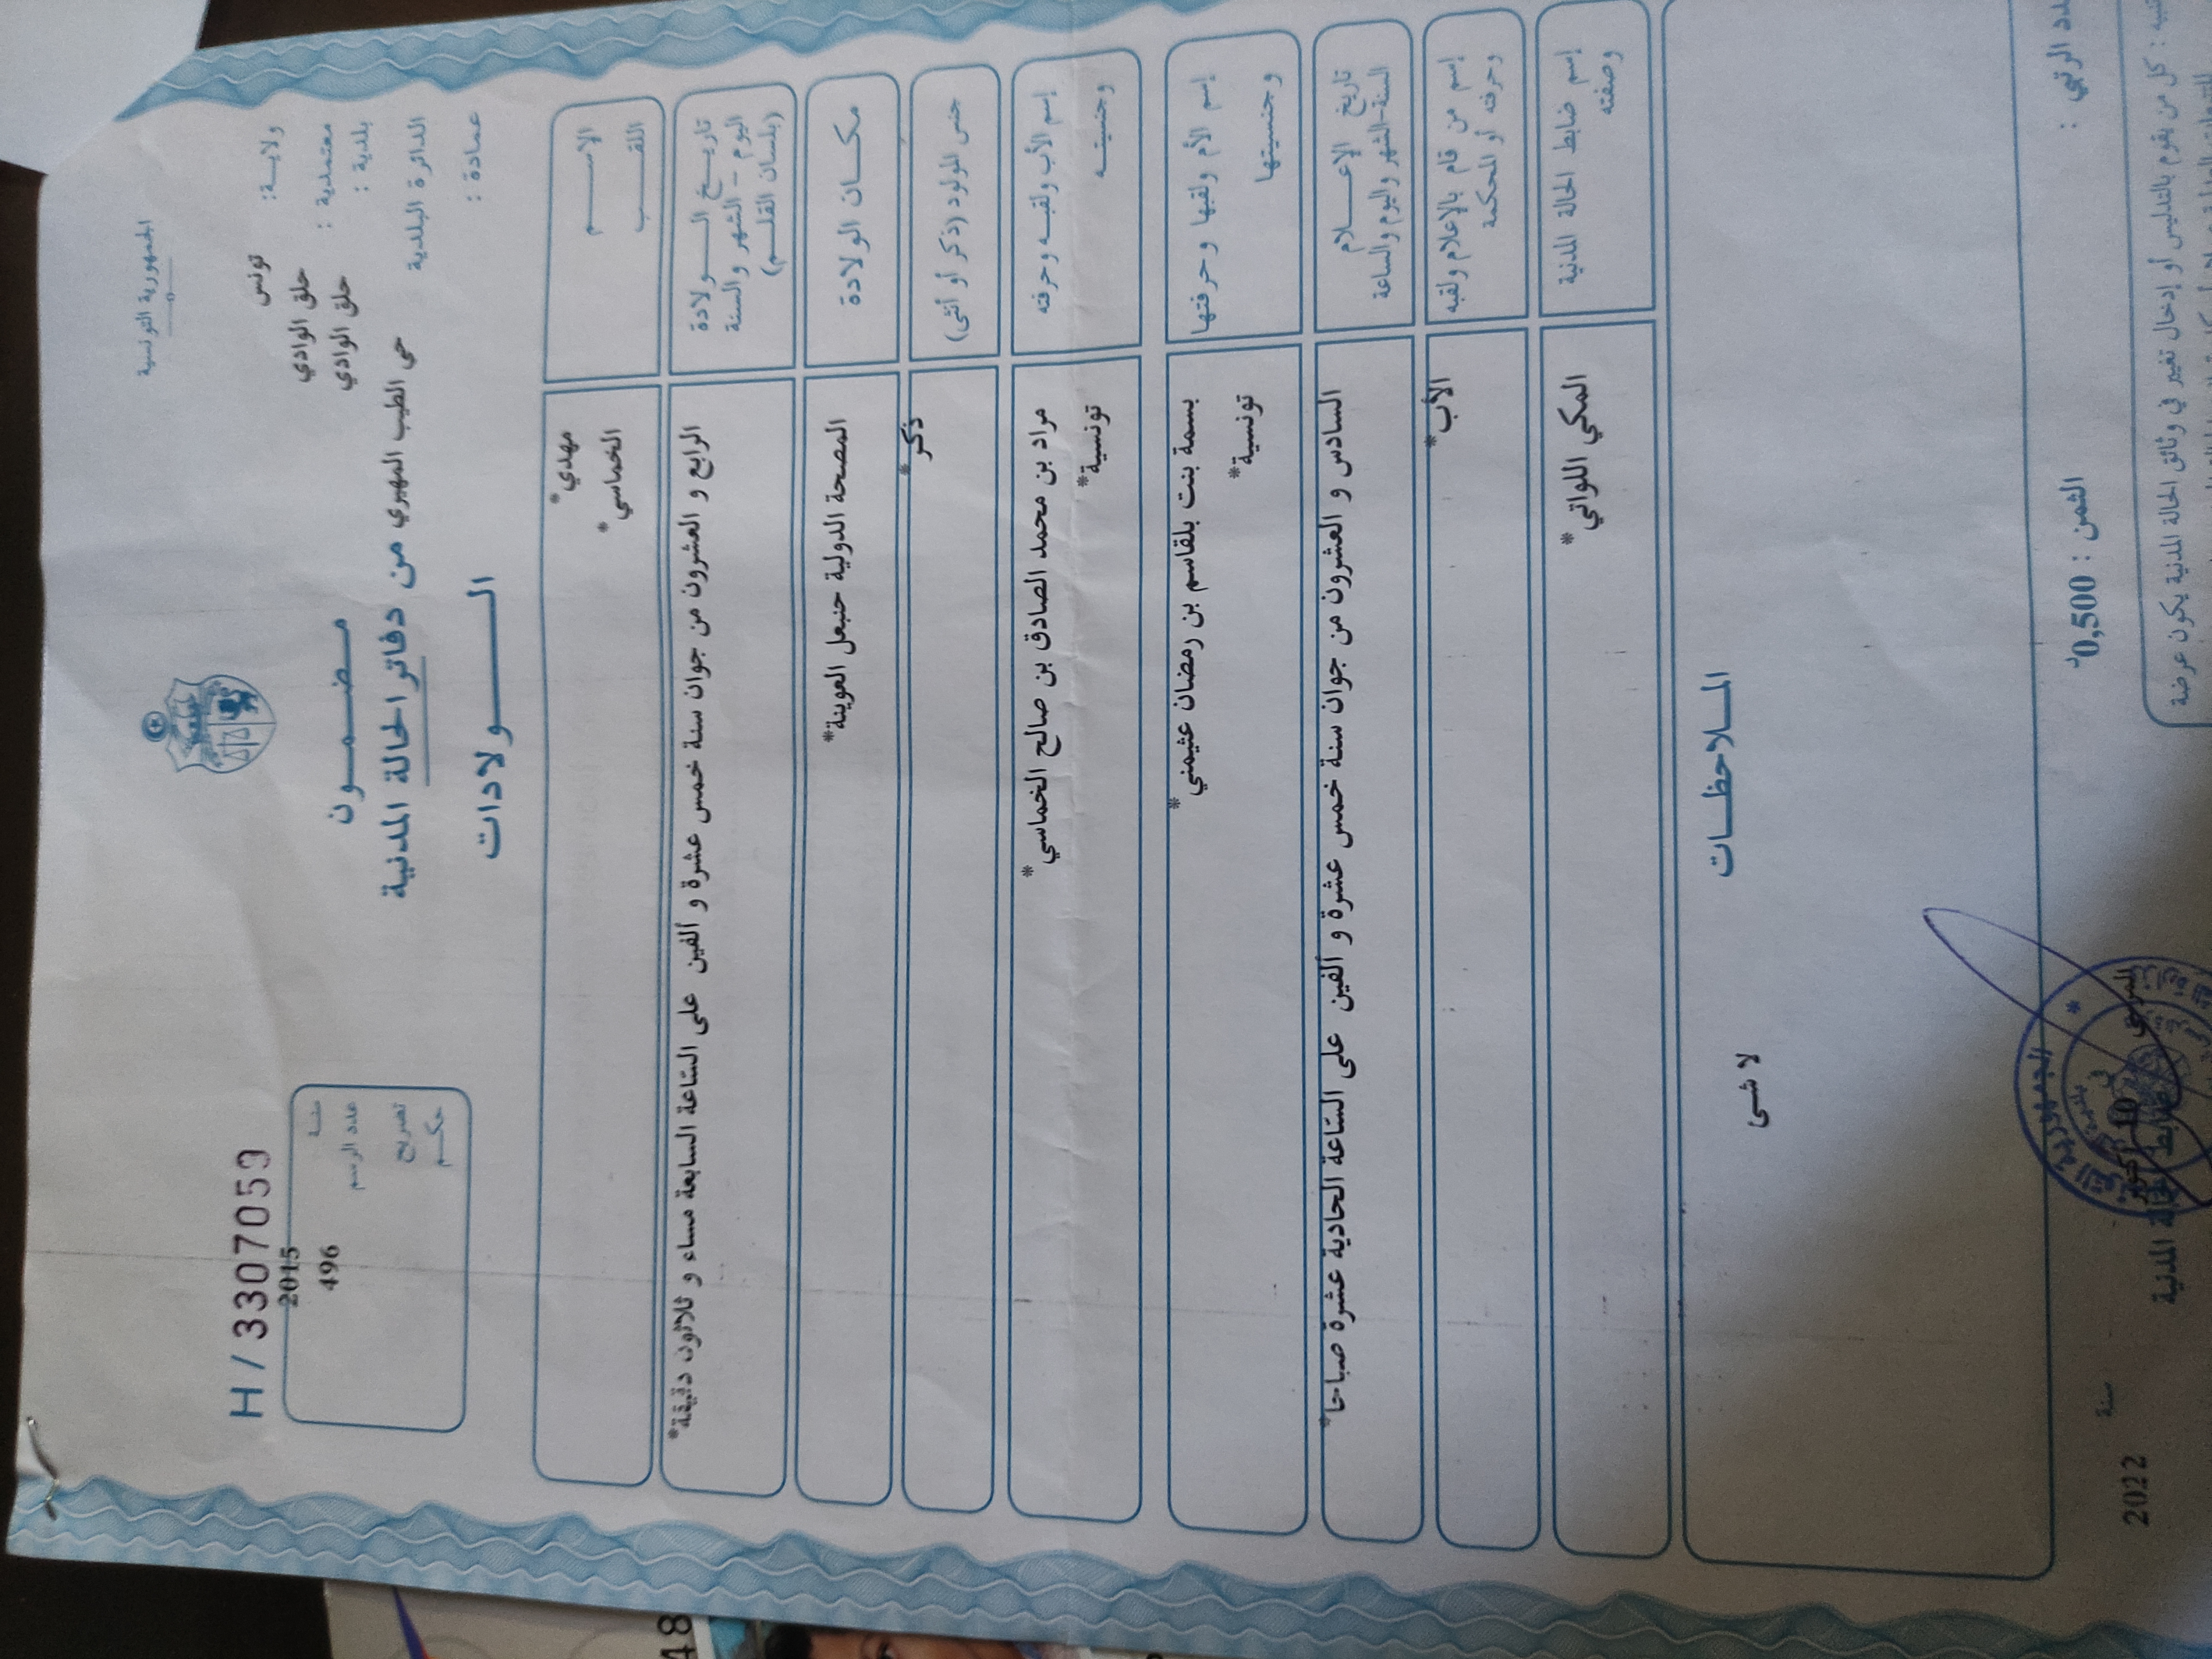 الجمهورية التونسية
H / 3307059
ولاية: تونس
معتمدية : حلق الوادي
بلدية : حلق الوادي
الدائرة البلدية حي الطيب المهيري
عمادة :
سنة 2015
عدد الرسم 496
تصريح
حكم
مضمون
من دفاتر الحالة المدنية
الولادات
الاسم مهدي*
اللقب الخماسي*
تاريخ الولادة
اليوم - الشهر والسنة
(بلسان القلم)
الرابع و العشرون من جوان سنة خمس عشرة و ألفين على الساعة السابعة مساء و ثلاثون دقيقة*
مكان الولادة المصحة الدولية حنبعل العوينة*
جنس المولود (ذكر أو أنثى) ذكر*
إسم الأب ولقبه وحرفته مراد بن محمد الصادق بن صالح الخماسي*
وجنسيته تونسية*
إسم الأم ولقبها وحرفتها بسمة بنت بلقاسم بن رمضان عثيمني*
وجنسيتها تونسية*
تاريخ الإعلام
السنة-الشهر واليوم والساعة
السادس و العشرون من جوان سنة خمس عشرة و ألفين على الساعة الحادية عشرة صباحا*
إسم من قام بالإعلام ولقبه الأب*
وحرفته أو المحكمة
إسم ضابط الحالة المدنية المكي اللواتي*
وصفته
الملاحظات
لا شئ
الرتبي :
الثمن : 0,500د
10 أكتوبر
سنة 2022
ضابط الحالة المدنية
الجمهورية
كل من يقوم بالتدليس أو إدخال تغيير في وثائق الحالة المدنية يكون عرضة
48